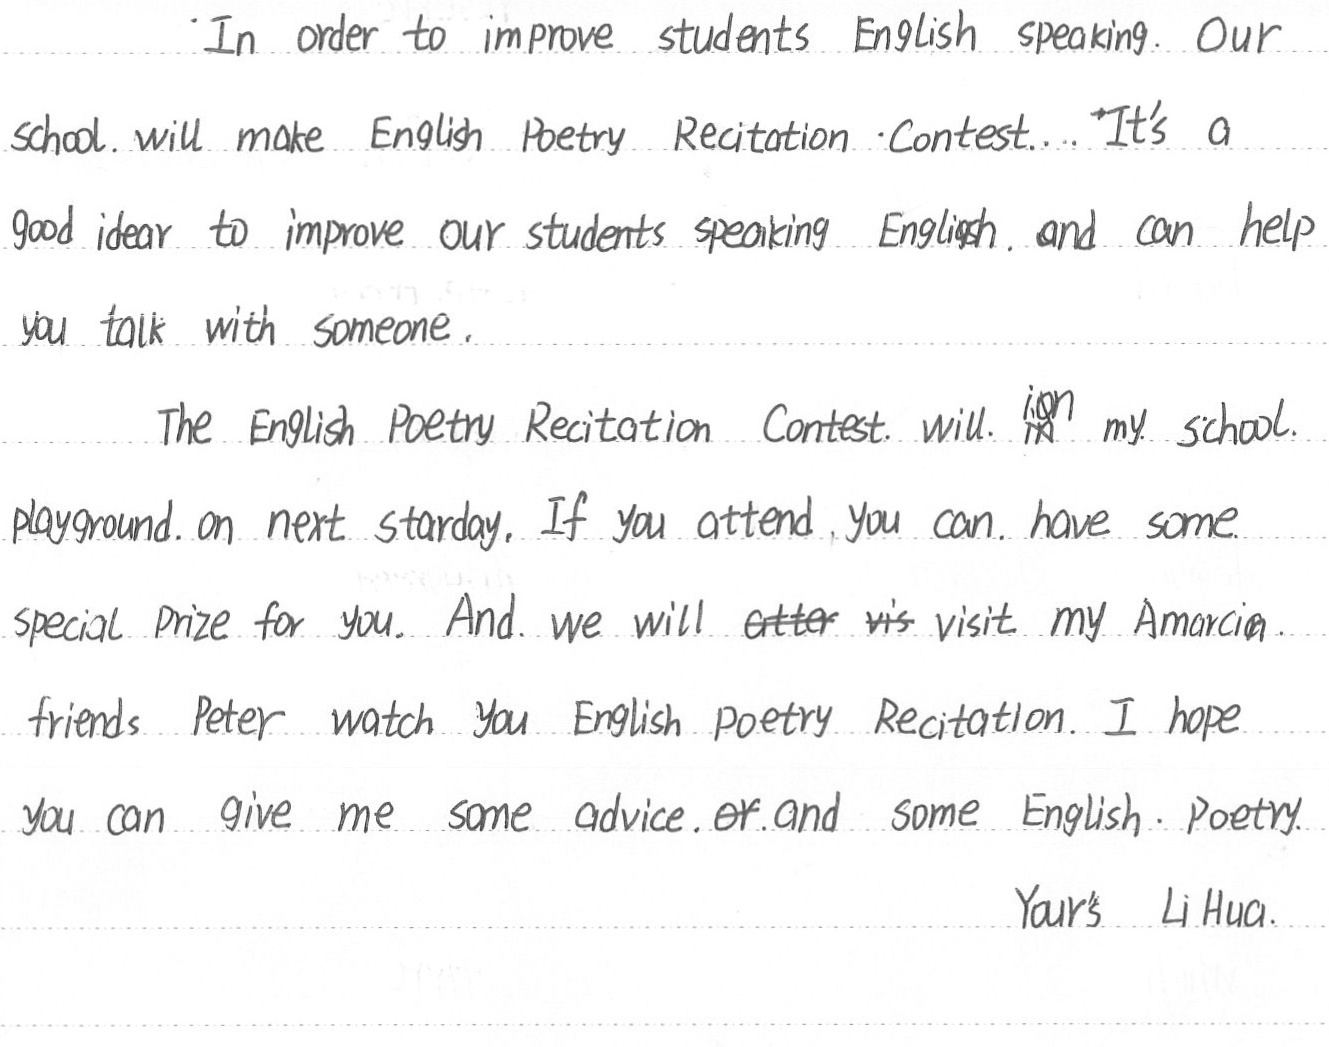 In order to improve students English speaking. Our
school. will make English Poetry Recitation Contest.... It's a
good idear to improve our students speaking English. and can help
you talk with someone.
The English Poetry Recitation Contest. will. my school.
playground. on next starday. If you attend, you can. have some
special prize for you. And. we will visit my Amarcia.
friends Peter watch you English poetry Recitation. I hope
you can give me some advice. and some English. Poetry.
Your's Li Hua.